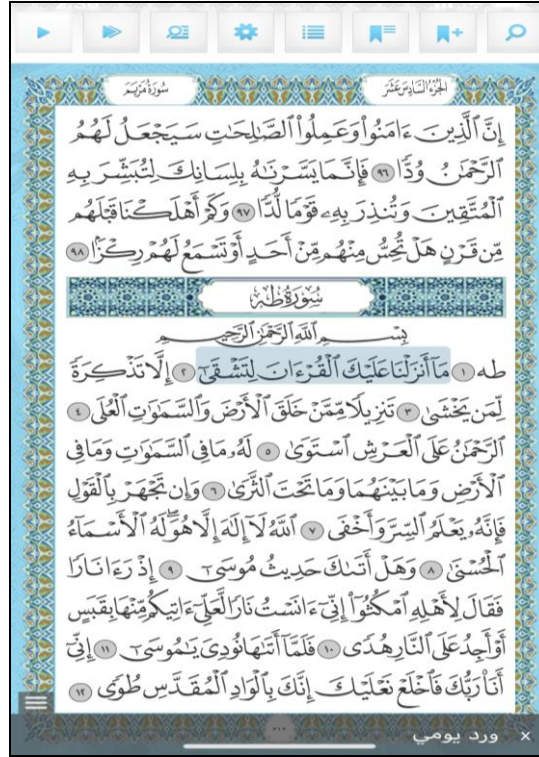 سُورَةُ مَرْيَمَ
الجُزْءُ السَّادِسَ عَشَرَ
إِنَّ ٱلَّذِينَ ءَامَنُوا۟ وَعَمِلُوا۟ ٱلصَّـٰلِحَـٰتِ سَيَجْعَلُ لَهُمُ
ٱلرَّحْمَـٰنُ وُدًّا ٩٦ فَإِنَّمَا يَسَّرْنَـٰهُ بِلِسَانِكَ لِتُبَشِّرَ بِهِ
ٱلْمُتَّقِينَ وَتُنذِرَ بِهِۦ قَوْمًا لُّدًّا ٩٧ وَكَمْ أَهْلَكْنَا قَبْلَهُم
مِّن قَرْنٍ هَلْ تُحِسُّ مِنْهُم مِّنْ أَحَدٍ أَوْ تَسْمَعُ لَهُمْ رِكْزًۢا ٩٨
سُورَةُ طه
بِسْمِ ٱللَّهِ ٱلرَّحْمَـٰنِ ٱلرَّحِيمِ
طه ١ مَآ أَنزَلْنَا عَلَيْكَ ٱلْقُرْءَانَ لِتَشْقَىٰٓ ٢ إِلَّا تَذْكِرَةً
لِّمَن يَخْشَىٰ ٣ تَنزِيلًا مِّمَّنْ خَلَقَ ٱلْأَرْضَ وَٱلسَّمَـٰوَٰتِ ٱلْعُلَى ٤
ٱلرَّحْمَـٰنُ عَلَى ٱلْعَرْشِ ٱسْتَوَىٰ ٥ لَهُۥ مَا فِى ٱلسَّمَـٰوَٰتِ وَمَا فِى
ٱلْأَرْضِ وَمَا بَيْنَهُمَا وَمَا تَحْتَ ٱلثَّرَىٰ ٦ وَإِن تَجْهَرْ بِٱلْقَوْلِ
فَإِنَّهُۥ يَعْلَمُ ٱلسِّرَّ وَأَخْفَى ٧ ٱللَّهُ لَآ إِلَـٰهَ إِلَّا هُوَۖ لَهُ ٱلْأَسْمَآءُ
ٱلْحُسْنَىٰ ٨ وَهَلْ أَتَىٰكَ حَدِيثُ مُوسَىٰٓ ٩ إِذْ رَءَا نَارًا
فَقَالَ لِأَهْلِهِ ٱمْكُثُوٓا۟ إِنِّىٓ ءَانَسْتُ نَارًا لَّعَلِّىٓ ءَاتِيكُم مِّنْهَا بِقَبَسٍ
أَوْ أَجِدُ عَلَى ٱلنَّارِ هُدًى ١٠ فَلَمَّآ أَتَىٰهَا نُودِىَ يَـٰمُوسَىٰٓ ١١ إِنِّىٓ
أَنَا۠ رَبُّكَ فَٱخْلَعْ نَعْلَيْكَ إِنَّكَ بِٱلْوَادِ ٱلْمُقَدَّسِ طُوًى ١٢
٣١٢
ورد يومي